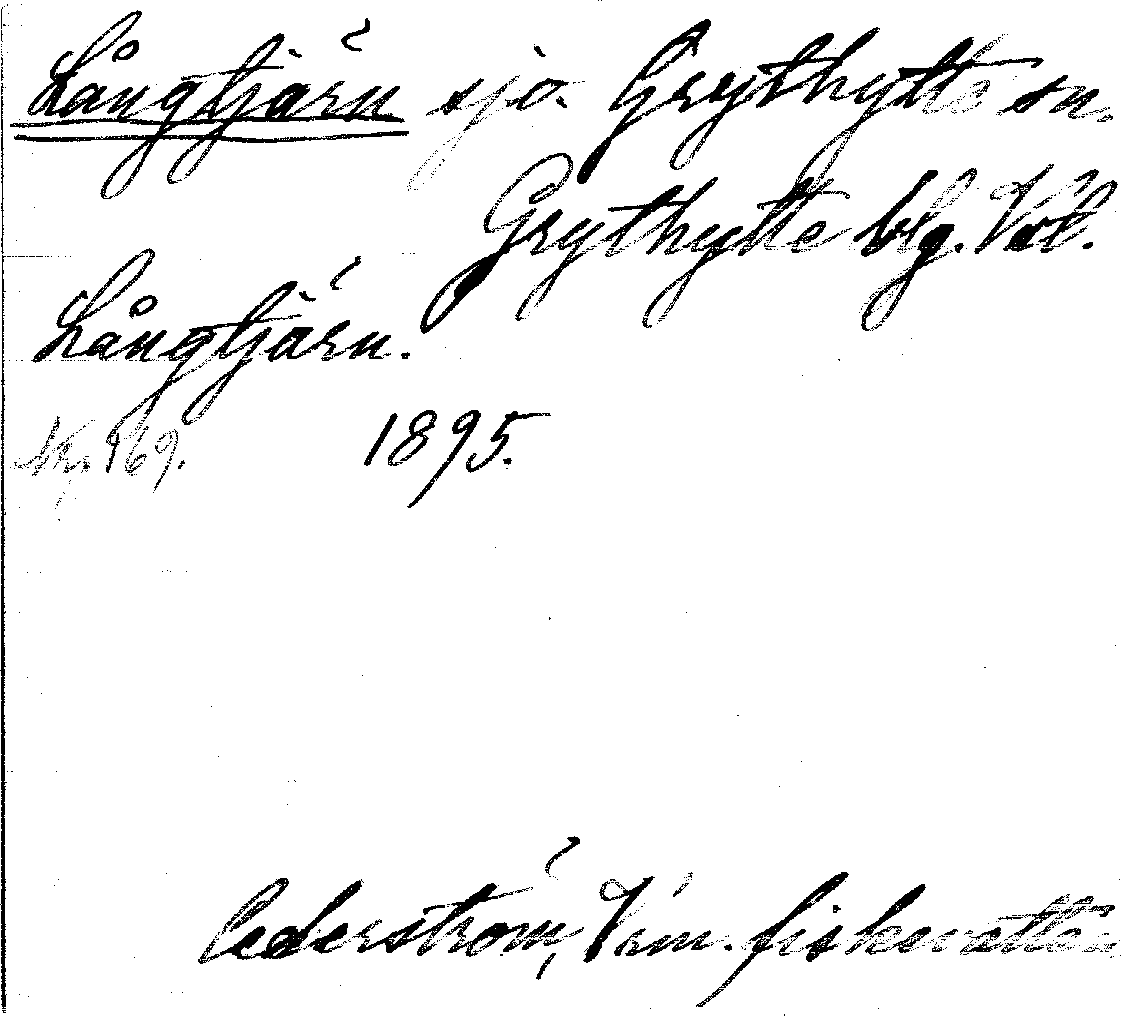 Långtjärn sjö. Grythytte sn.
Grythytte blg. Vsl.
Långtjärn.
1895.
Cederström, Vrm. fiskevatten